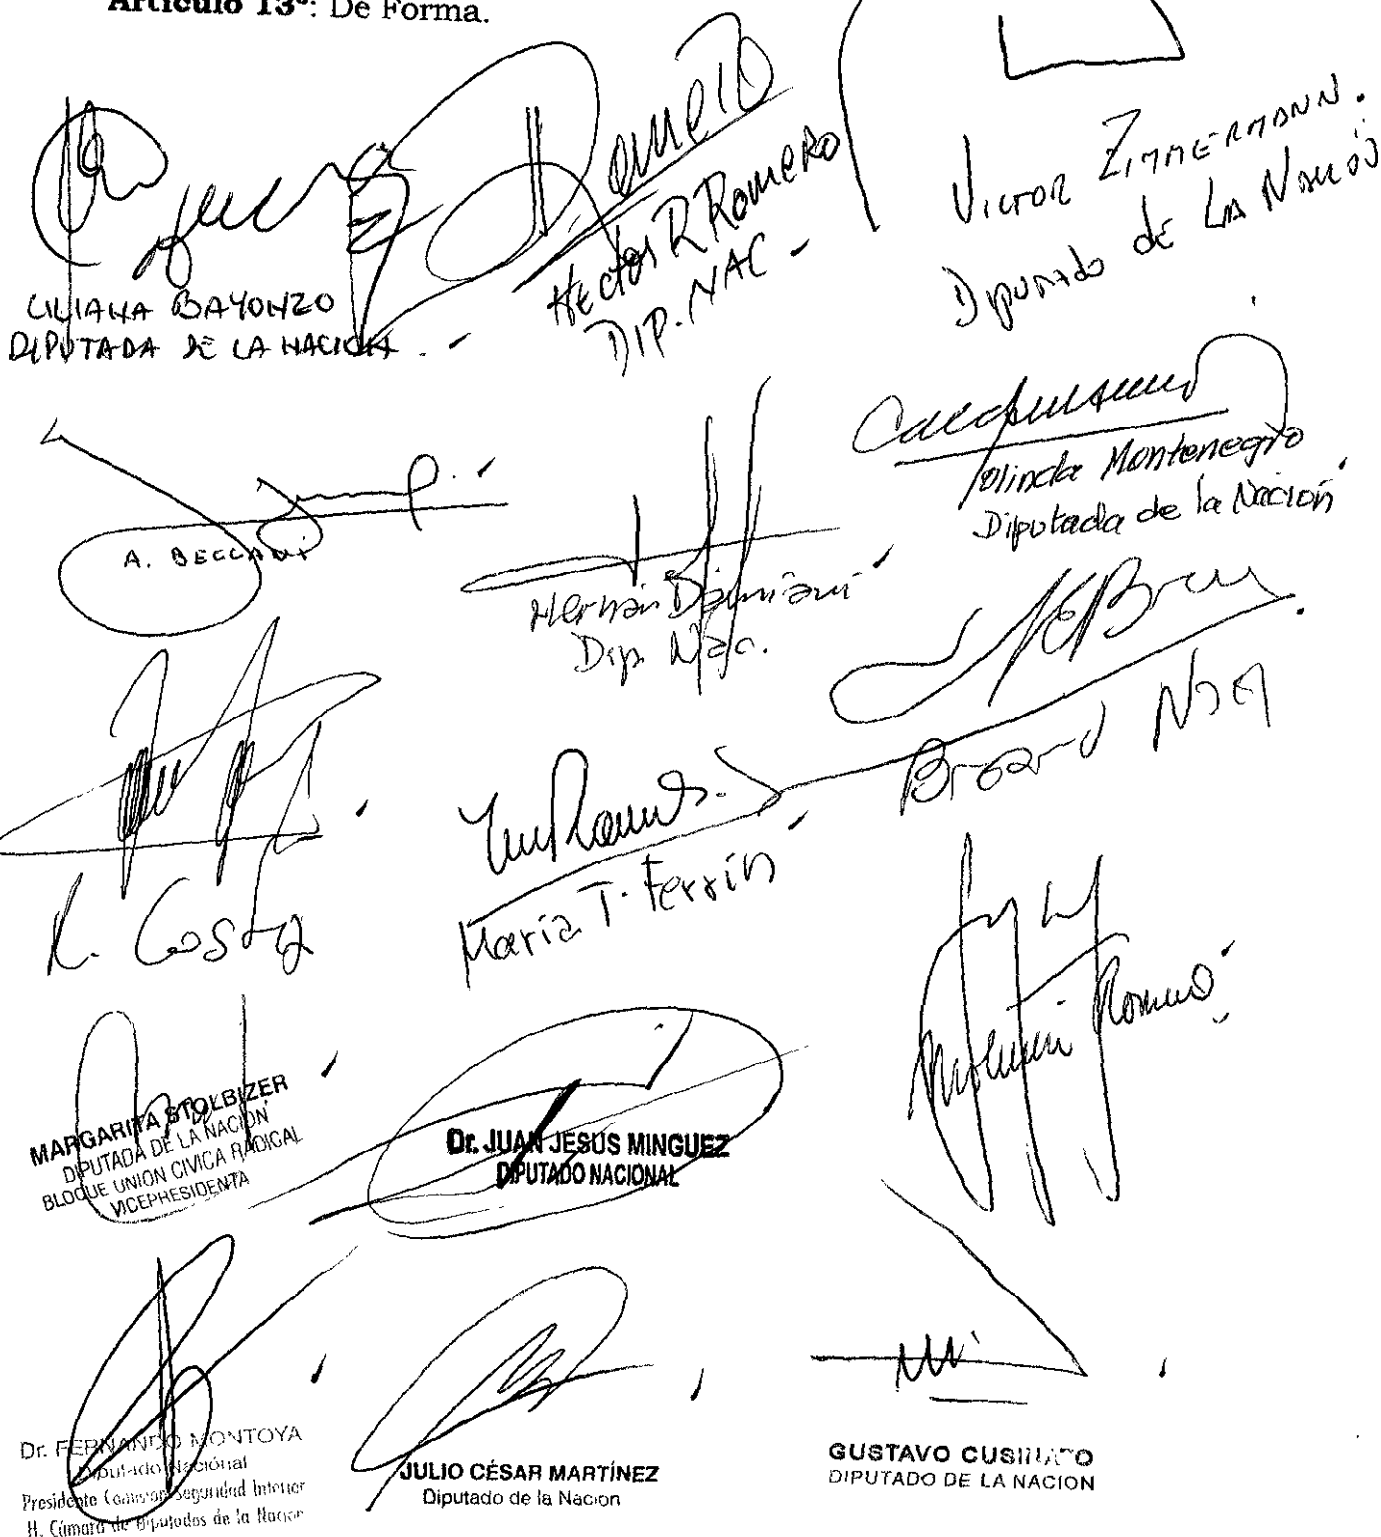 Artículo 13º: De Forma.
Romero
LILIANA BAYONZO
DIPUTADA DE LA NACION.-
Hector R Romero
DIP. NAC-
VICTOR ZIMMERMANN.
Diputado de LA NACIÓN
A. BECCANI
Hernán Damiani
Dip. Nac.
olinda Montenegro
Diputada de la Nación
R. Costa
María T. Ferrín
Breard Noel
Romero
MARGARITA STOLBIZER
DIPUTADA DE LA NACION
BLOQUE UNION CIVICA RADICAL
VICEPRESIDENTA
Dr. JUAN JESUS MINGUEZ
DIPUTADO NACIONAL
Dr. FERNANDO MONTOYA
Diputado Nacional
Presidente Comision Seguridad Interior
H. Cámara de Diputados de la Nacion
JULIO CÉSAR MARTÍNEZ
Diputado de la Nacion
GUSTAVO CUSINATO
DIPUTADO DE LA NACION